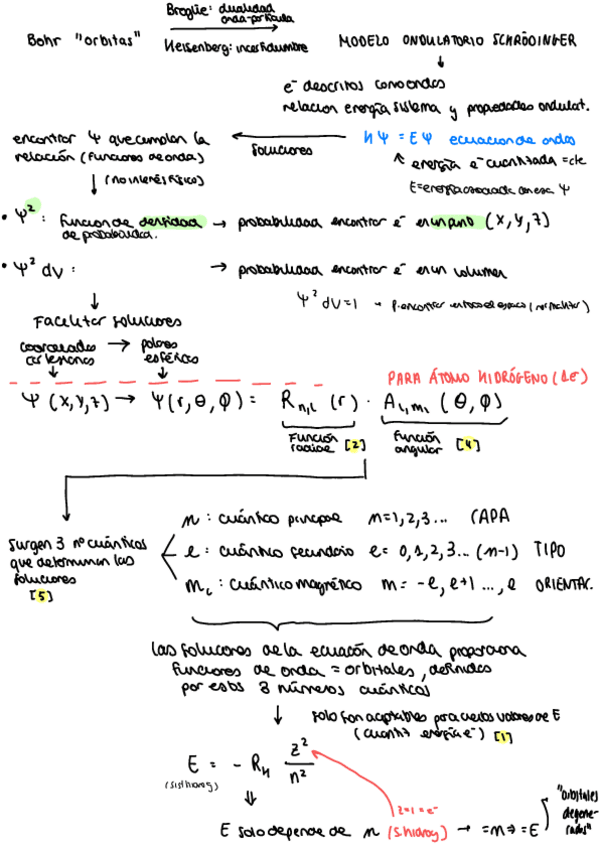 Broglie: dualidad
onda-partícula
Bohr "orbitas"
Heisenberg: incertidumbre
MODELO ONDULATORIO SCHRÖDINGER
e⁻ descritos como ondas
relacion energía sistema y propiedades ondulat.
encontrar Ψ que cumplan la
relación (funciones de onda)
soluciones
HΨ = EΨ ecuacion de ondas
energía e⁻ cuantizada = cte
E = energía asociada con esa Ψ
(no interés físico)
• Ψ² : funcion de densidad
de probabilidad.
→ probabilidad encontrar e⁻ en un punto (x, y, z)
• Ψ² dV :
→ probabilidad encontrar e⁻ en un volumen
Ψ² dV = 1 → P. encontrar en todo el espacio (normalizar)
Facilitar soluciones
coordenadas → polares
cartesianas esféricas
PARA ÁTOMO HIDRÓGENO (1e⁻)
Ψ (x, y, z) → Ψ(r, θ, φ) = R n,l (r) · A l,ml (θ, φ)
Función
radial [2]
Función
angular [4]
Surgen 3 nº cuánticos
que determinan las
soluciones
[5]
n : cuántico principal n = 1, 2, 3 ... CAPA
l : cuántico secundario l = 0, 1, 2, 3... (n-1) TIPO
mL : cuántico magnético m = -l, l+1 ..., l ORIENTAC.
las soluciones de la ecuación de onda proporciona
funciones de onda = orbitales, definidos
por estos 3 números cuánticos
solo son aceptables para ciertos valores de E
(cuantiz energía e⁻) [1]
E = - R_H z²/n²
(sist hidrog)
z=1=e⁻
E solo depende de n (s. hidrog) → =n ⇒ =E
"orbitales
degene-
rados"